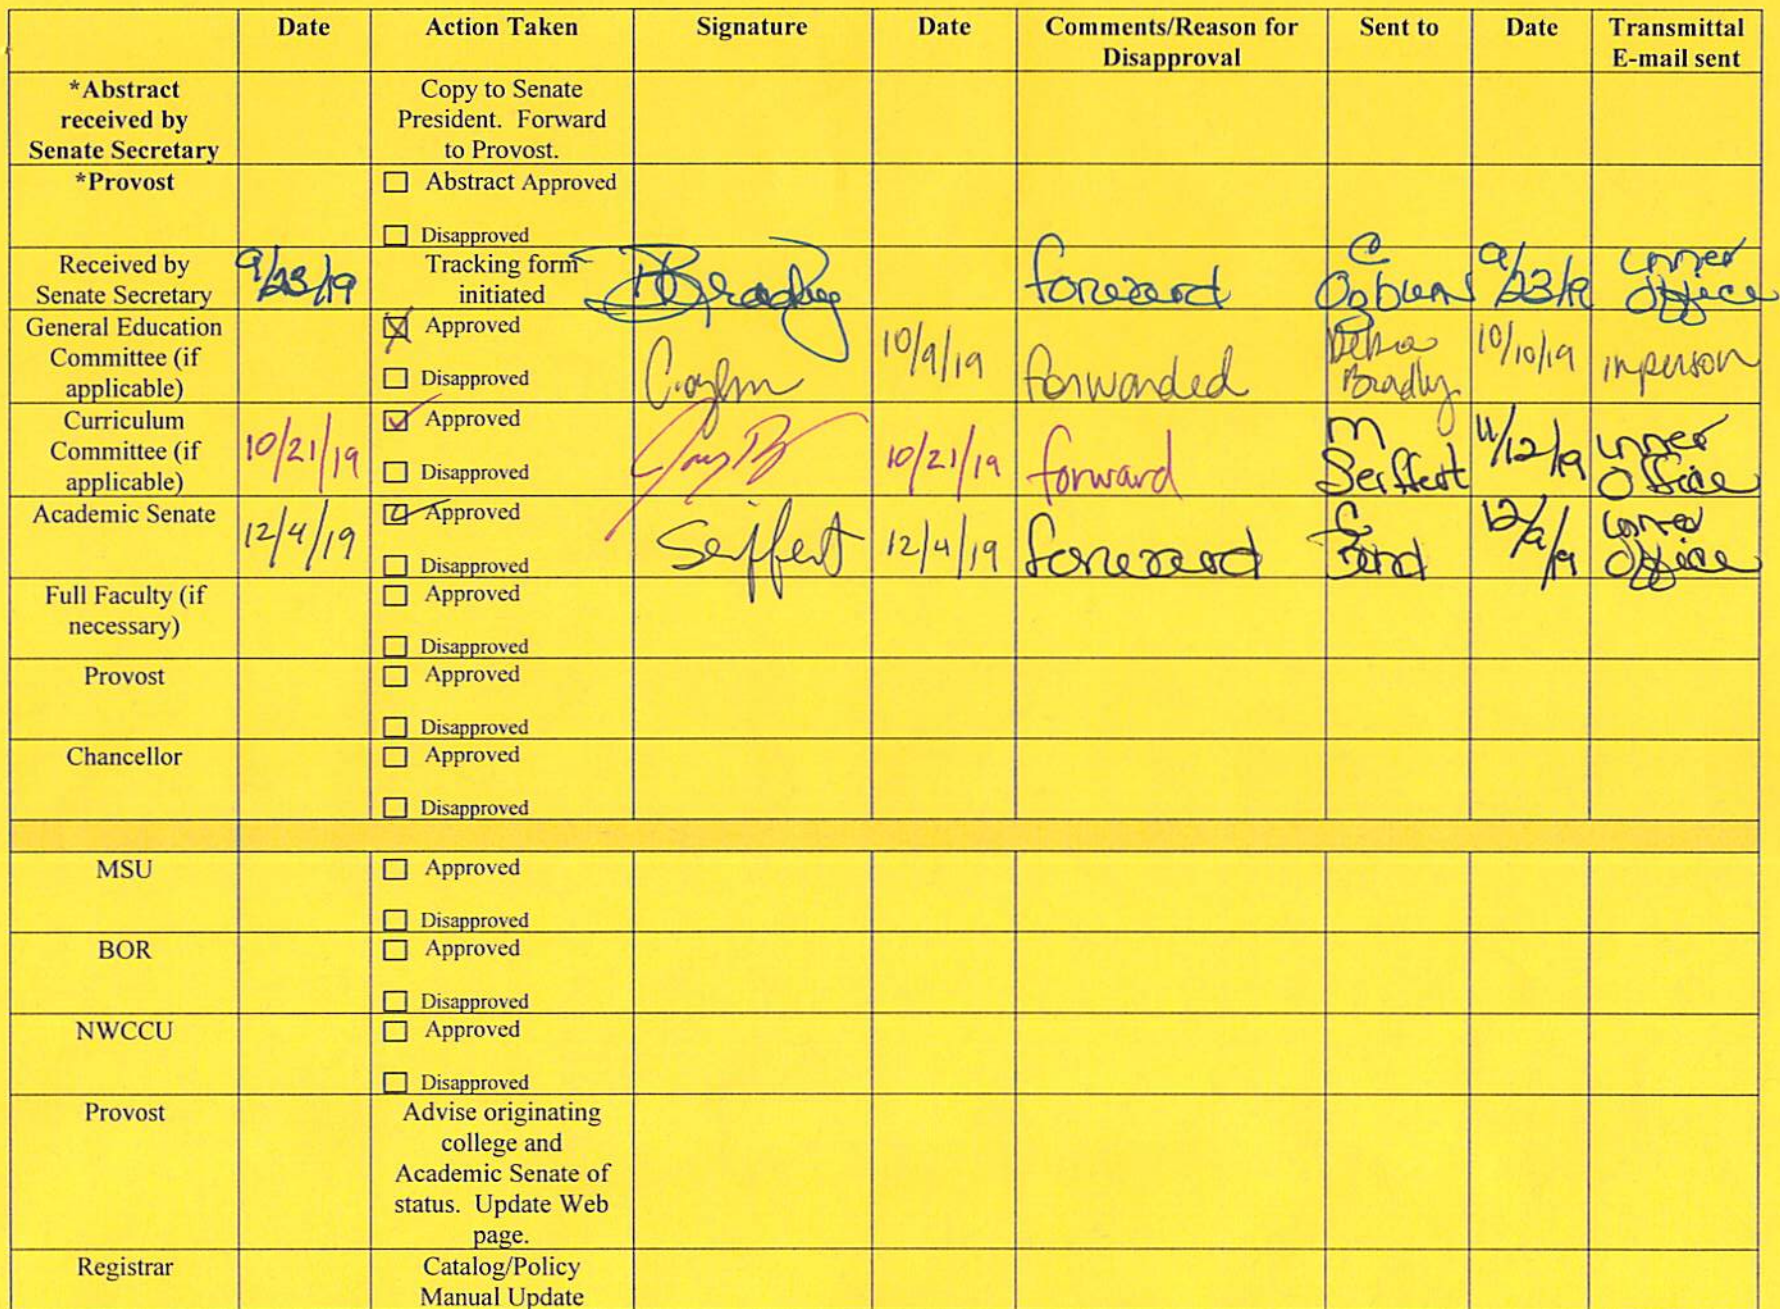 Date Action Taken Signature Date Comments/Reason for Disapproval Sent to Date Transmittal E-mail sent
*Abstract received by Senate Secretary Copy to Senate President. Forward to Provost.
*Provost ☐ Abstract Approved
☐ Disapproved
Received by Senate Secretary 9/23/19 Tracking form initiated Bradley forward C Ogburn 9/23/19 inner office
General Education Committee (if applicable) ☒ Approved 10/9/19 forwarded Bradly 10/10/19 in person
☐ Disapproved
Curriculum Committee (if applicable) 10/21/19 ☑ Approved 10/21/19 forward M Seiffert 11/12/19 inner office
☐ Disapproved
Academic Senate 12/4/19 ☑ Approved Seiffert 12/4/19 forward inner office
☐ Disapproved
Full Faculty (if necessary) ☐ Approved
☐ Disapproved
Provost ☐ Approved
☐ Disapproved
Chancellor ☐ Approved
☐ Disapproved
MSU ☐ Approved
☐ Disapproved
BOR ☐ Approved
☐ Disapproved
NWCCU ☐ Approved
☐ Disapproved
Provost Advise originating college and Academic Senate of status. Update Web page.
Registrar Catalog/Policy Manual Update